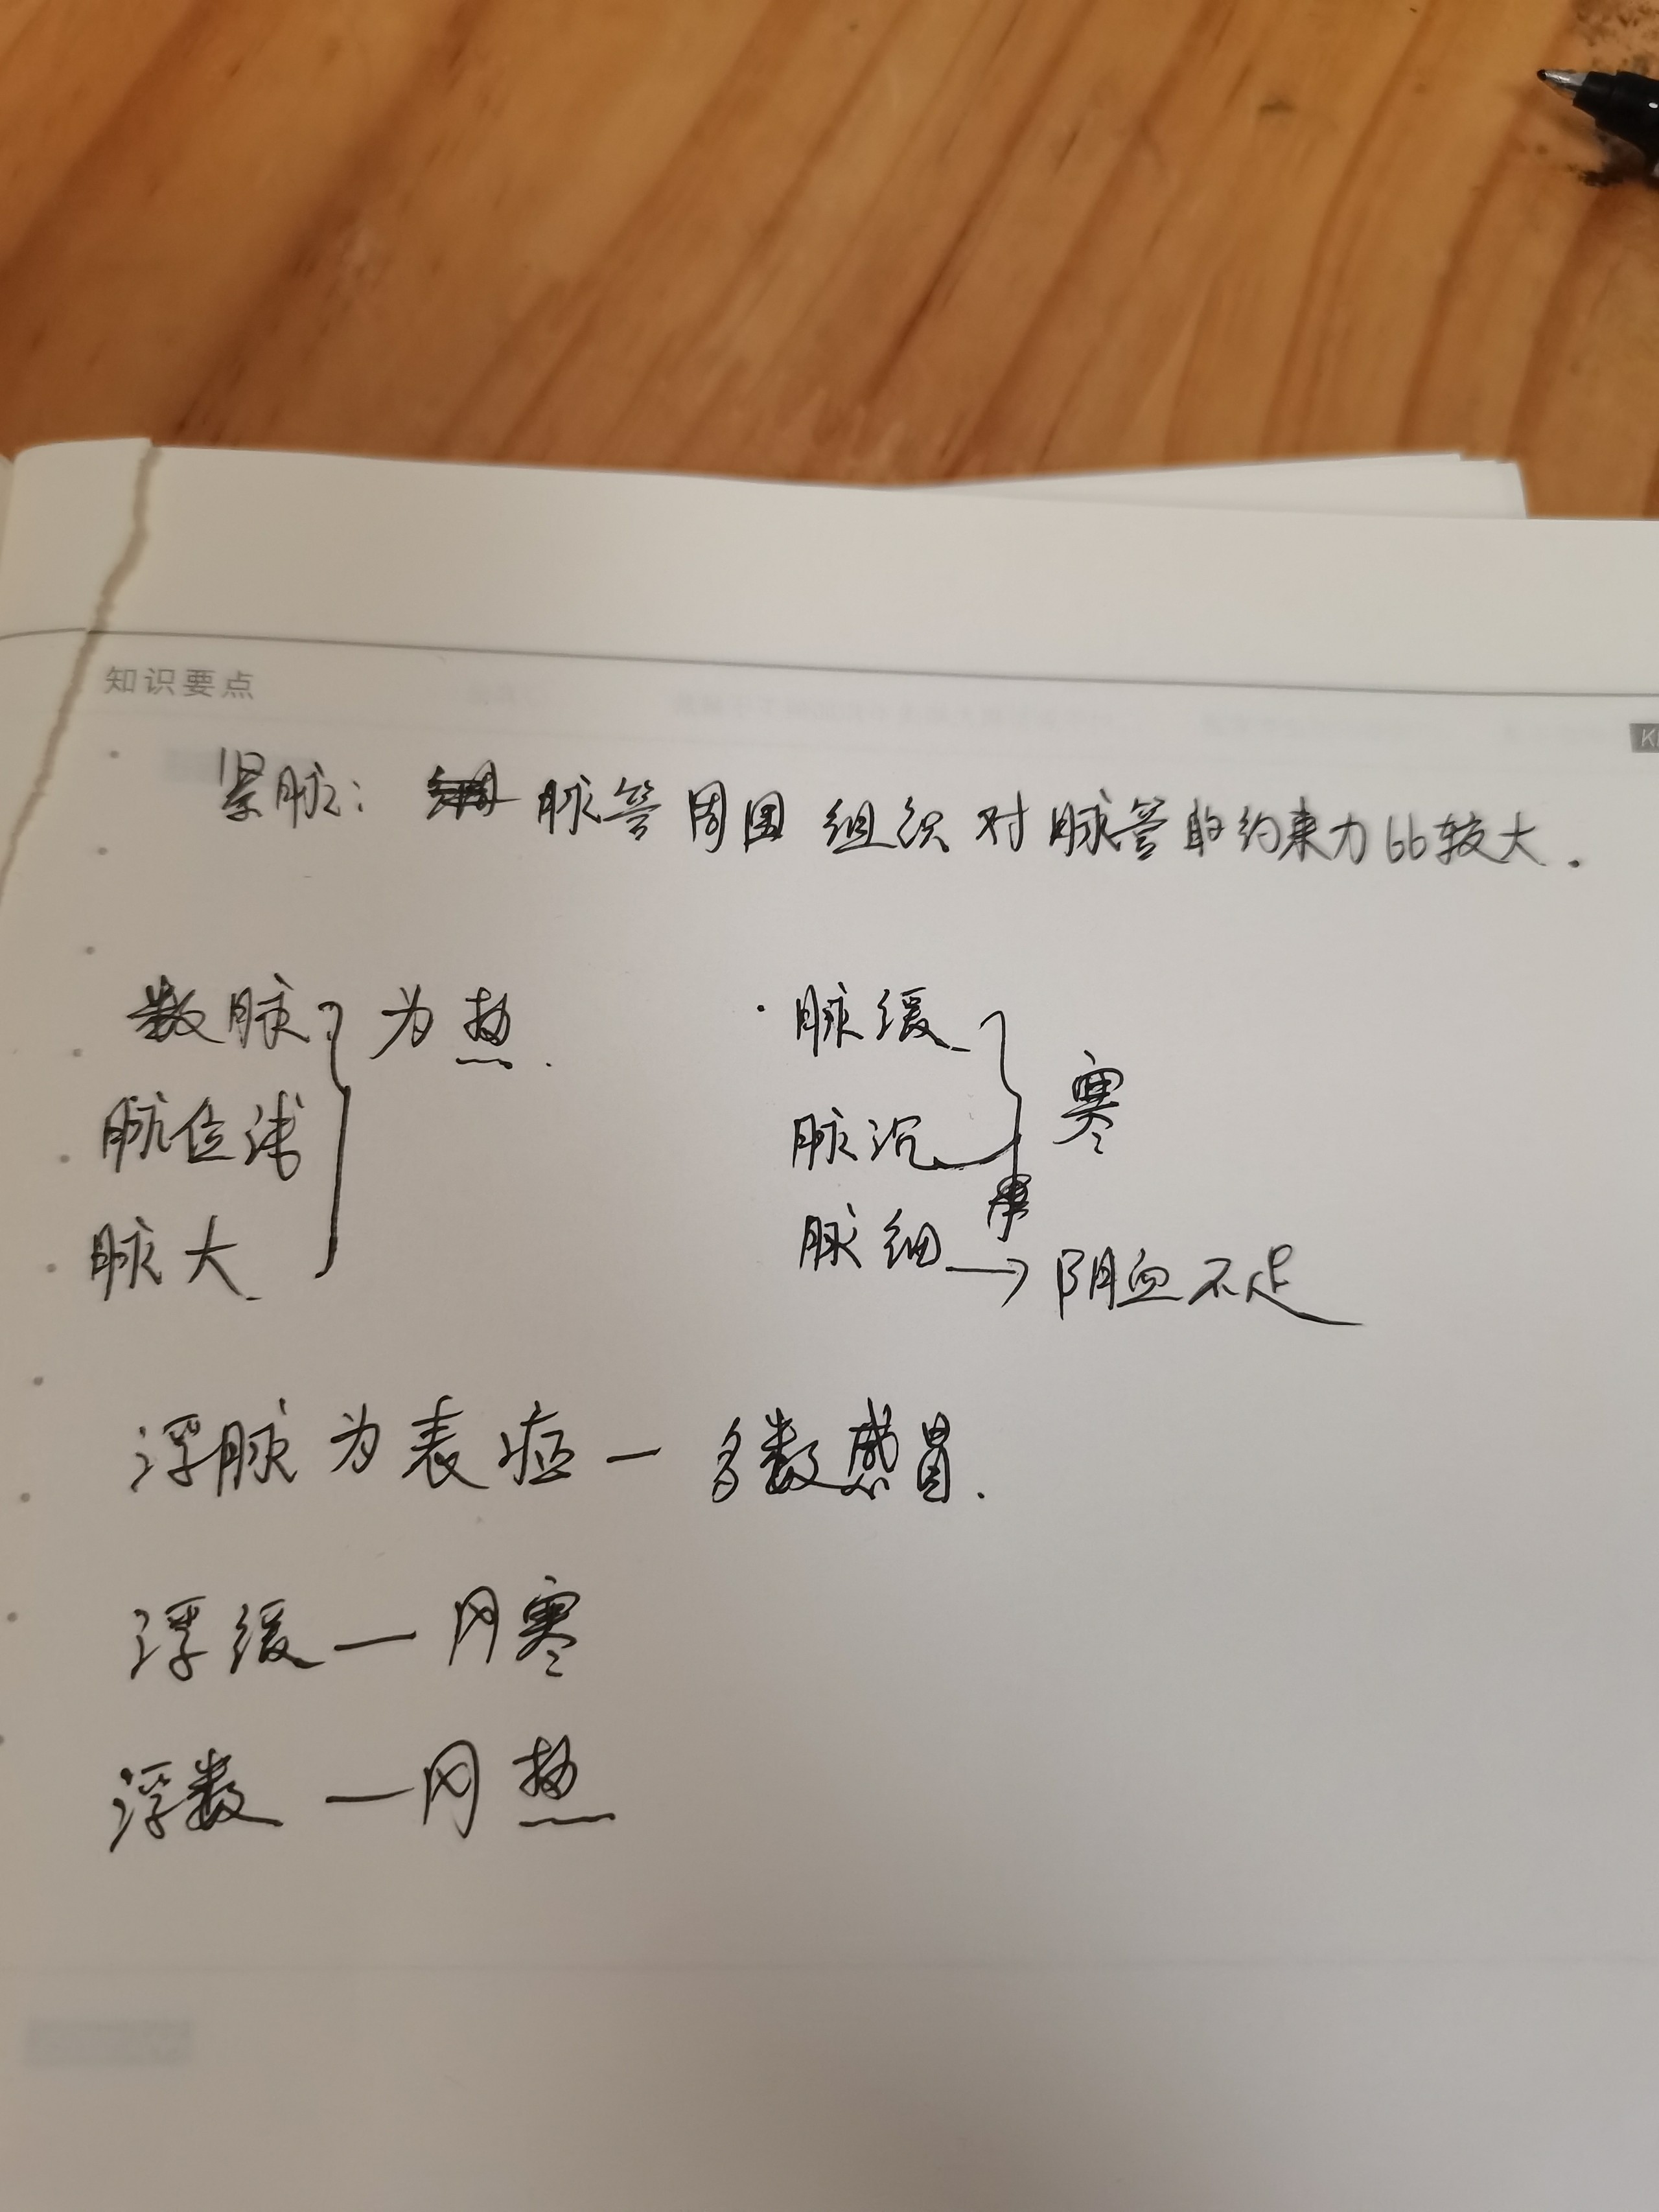 知识要点
紧脉：脉管周围组织对脉管的约束力比较大.
数脉 为热.
脉位浅
脉大.
·脉缓 寒
脉沉
脉细→阴血不足
浮脉为表症—多数感冒.
浮缓—风寒
浮数—风热